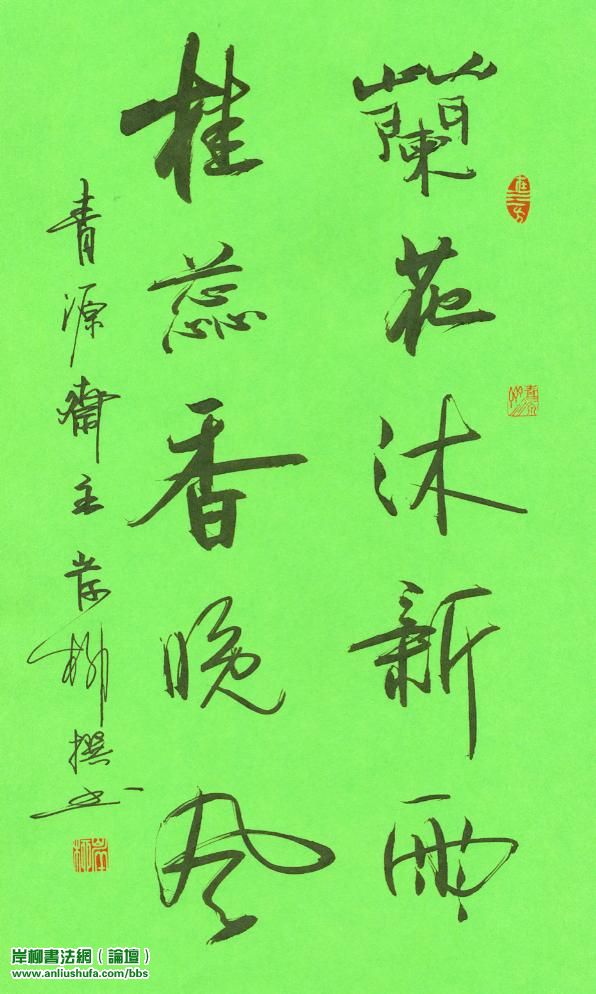 蘭花沐新雨
桂蕊香晚风
青源齋主岸柳撰书
岸柳
岸柳書法網（論壇）
www.anliushufa.com/bbs